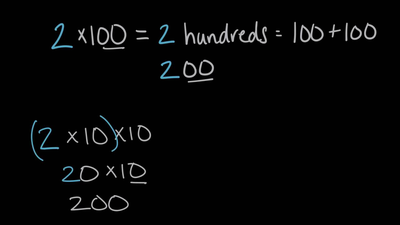 2 ×100 = 2 hundreds = 100+100
200
(2 ×10)×10
20 ×10
200